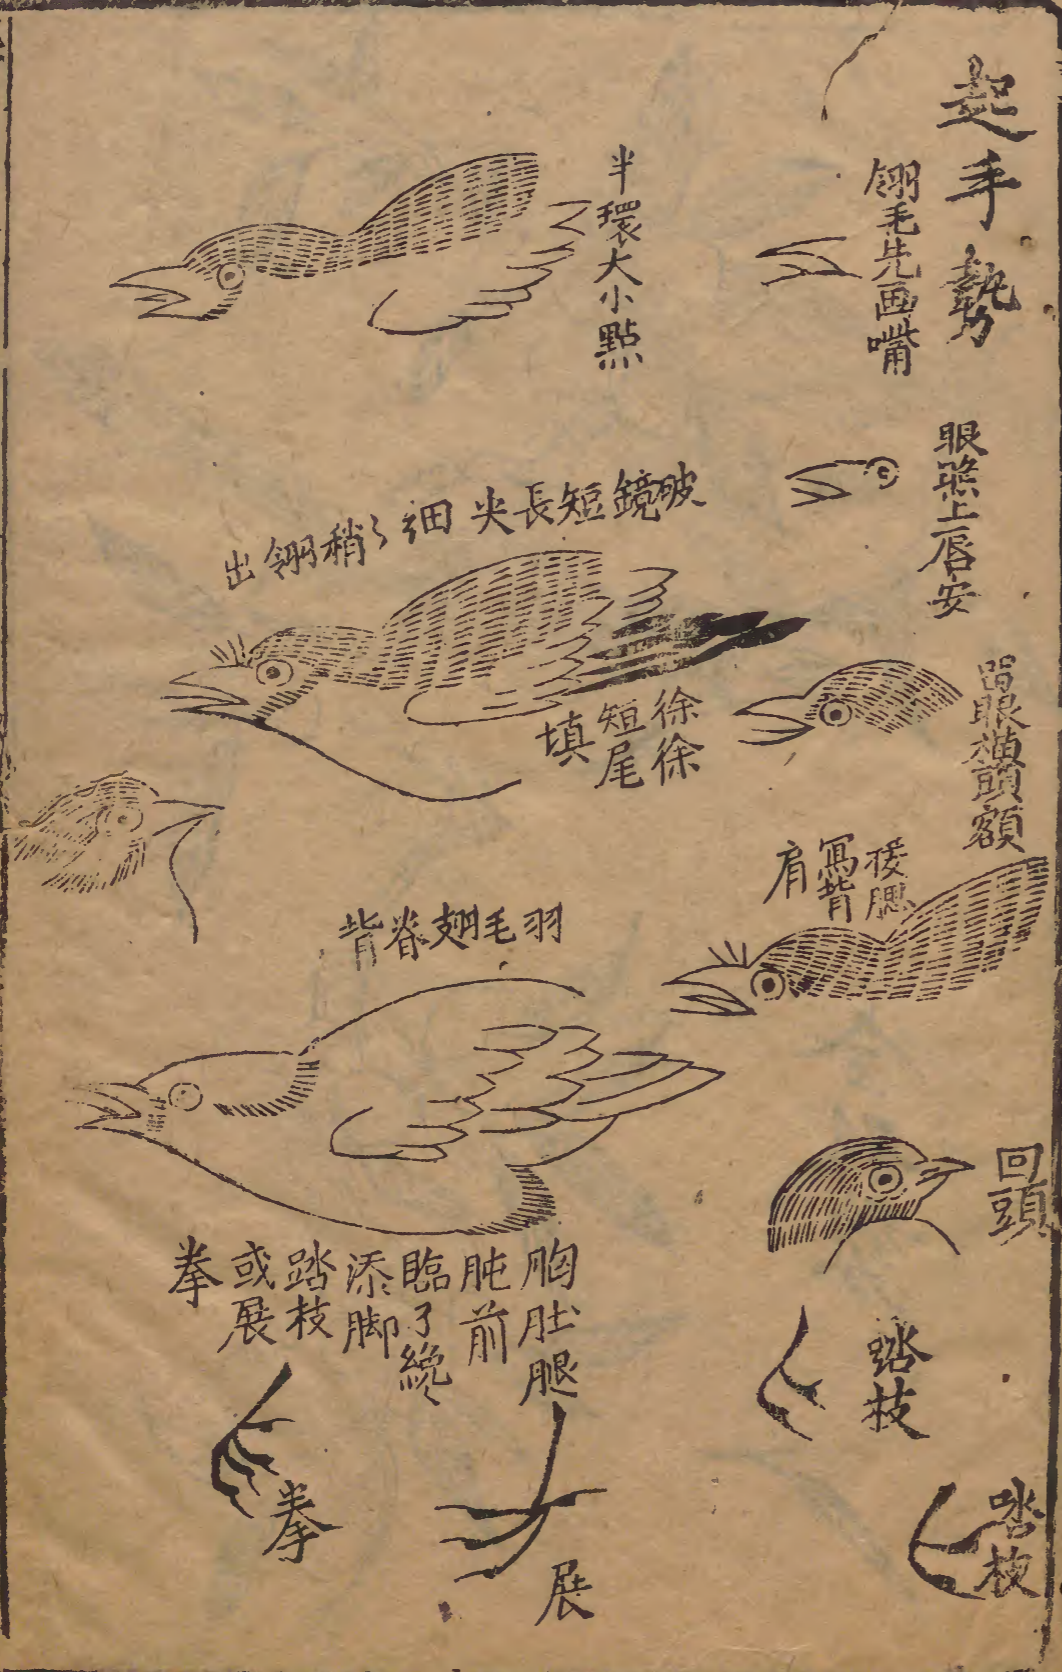 起手勢
翎毛先画嘴
眼照上唇安
留眼描頭額
接腮
寫背
肩
半環大小點
破鏡短長尖
細〻稍翎出
徐徐
短尾
填
羽毛翅脊背
胸肚腿
肫前
臨了纔
添脚
踏枝
或展
拳
回頭
踏枝
踏枝
展
拳